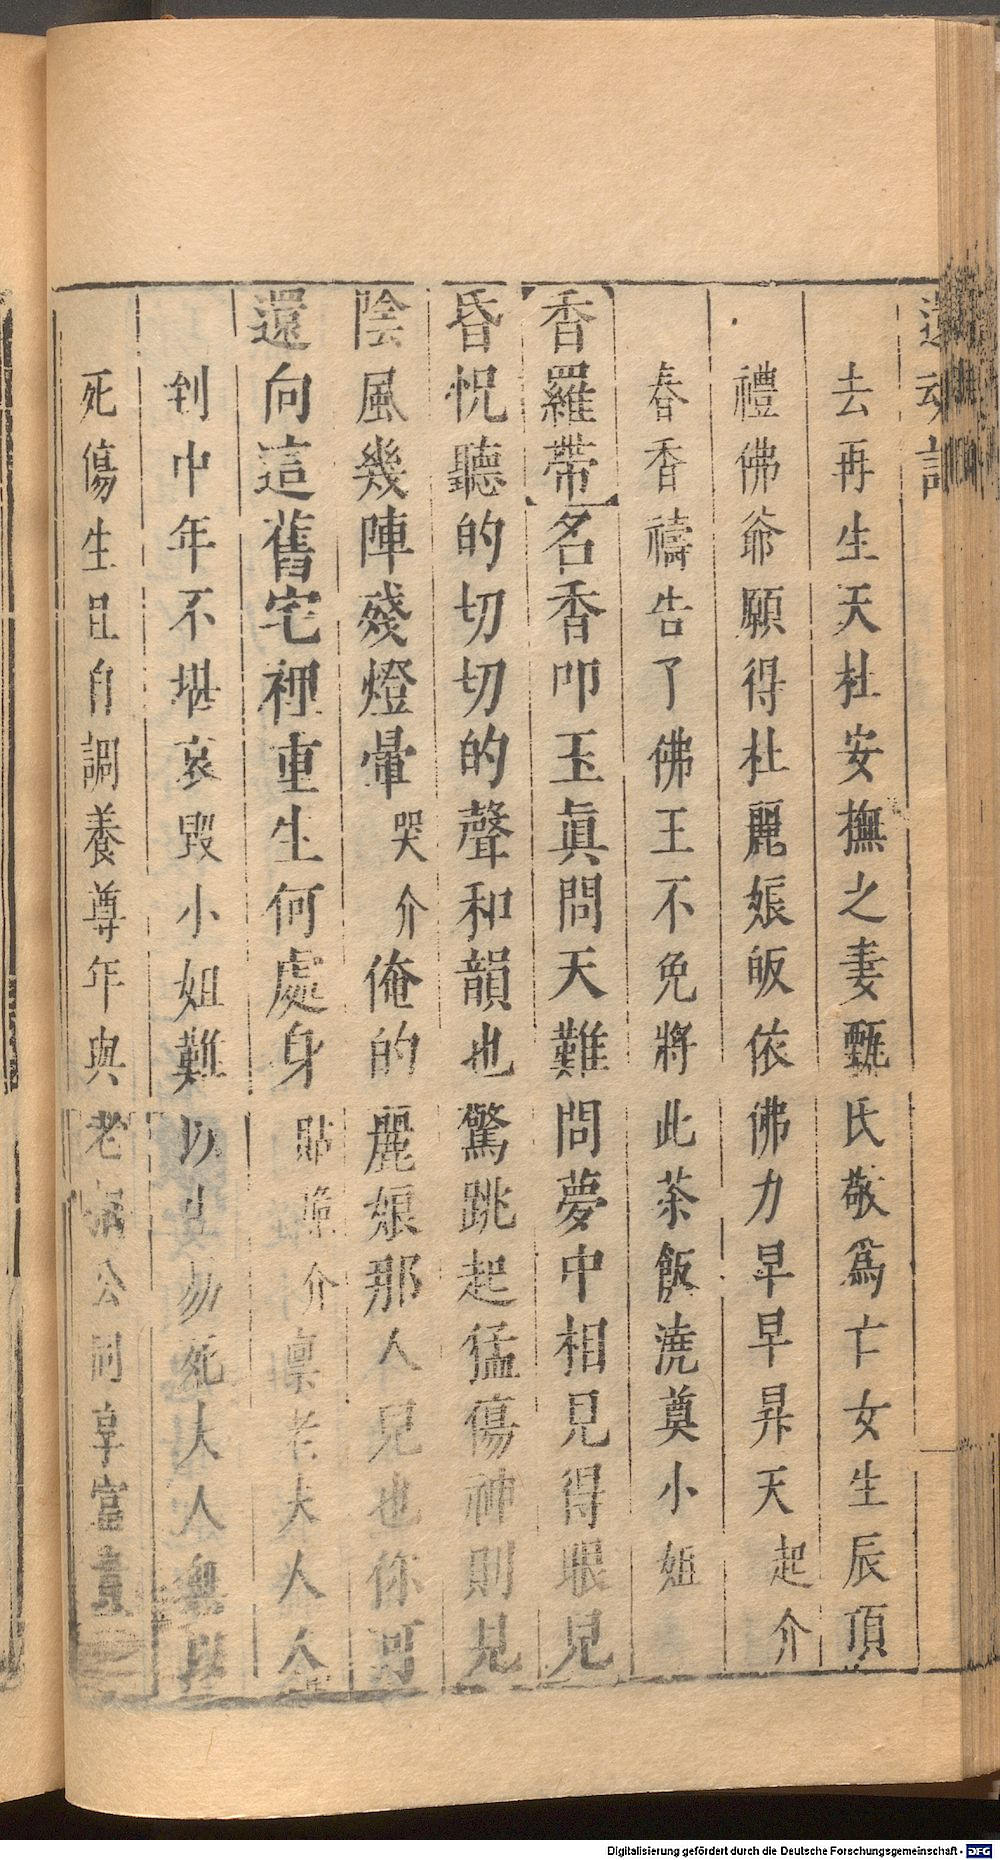 還魂記
去再生天杜安撫之妻甄氏敬爲亡女生辰頂
禮佛爺願得杜麗娘皈依佛力早早昇天起介
春香禱告了佛王不免將此茶飯澆奠小姐
香羅帶名香叩玉眞問天難問夢中相見得眼見
昏怳聽的切切的聲和韻也驚跳起猛傷神則見
陰風幾陣殘燈暈哭介俺的麗娘那人兒也你可
還向這舊宅裡重生何處身貼介禀老大人人
到中年不堪哀毀小姐難以生勿死大人無以
死傷生且自調養尊年與老公同享富貴
Digitalisierung gefördert durch die Deutsche Forschungsgemeinschaft - DFG